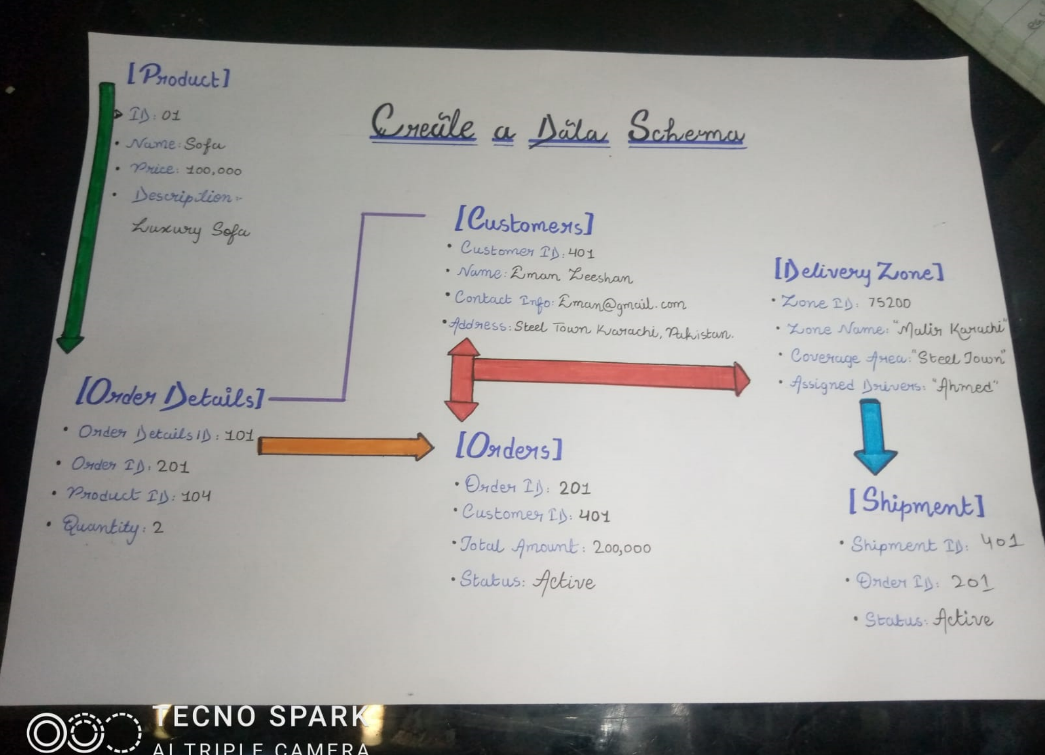 [Product]
ID: 01
• Name: Sofa
• Price: 100,000
• Description:-
Luxury Sofa
Create a Data Schema
[Customers]
• Customer ID: 401
• Name: Eman Zeeshan
• Contact Info: Eman@gmail.com
• Address: Steel Town Karachi, Pakistan.
[Delivery Zone]
• Zone ID: 75200
• Zone Name: "Malir Karachi"
• Coverage Area: "Steel Town"
• Assigned Drivers: "Ahmed"
[Order Details]
• Order Details ID: 101
• Order ID: 201
• Product ID: 104
• Quantity: 2
[Orders]
• Order ID: 201
• Customer ID: 401
• Total Amount: 200,000
• Status: Active
[Shipment]
• Shipment ID: 401
• Order ID: 201
• Status: Active
TECNO SPARK
AI TRIPLE CAMERA